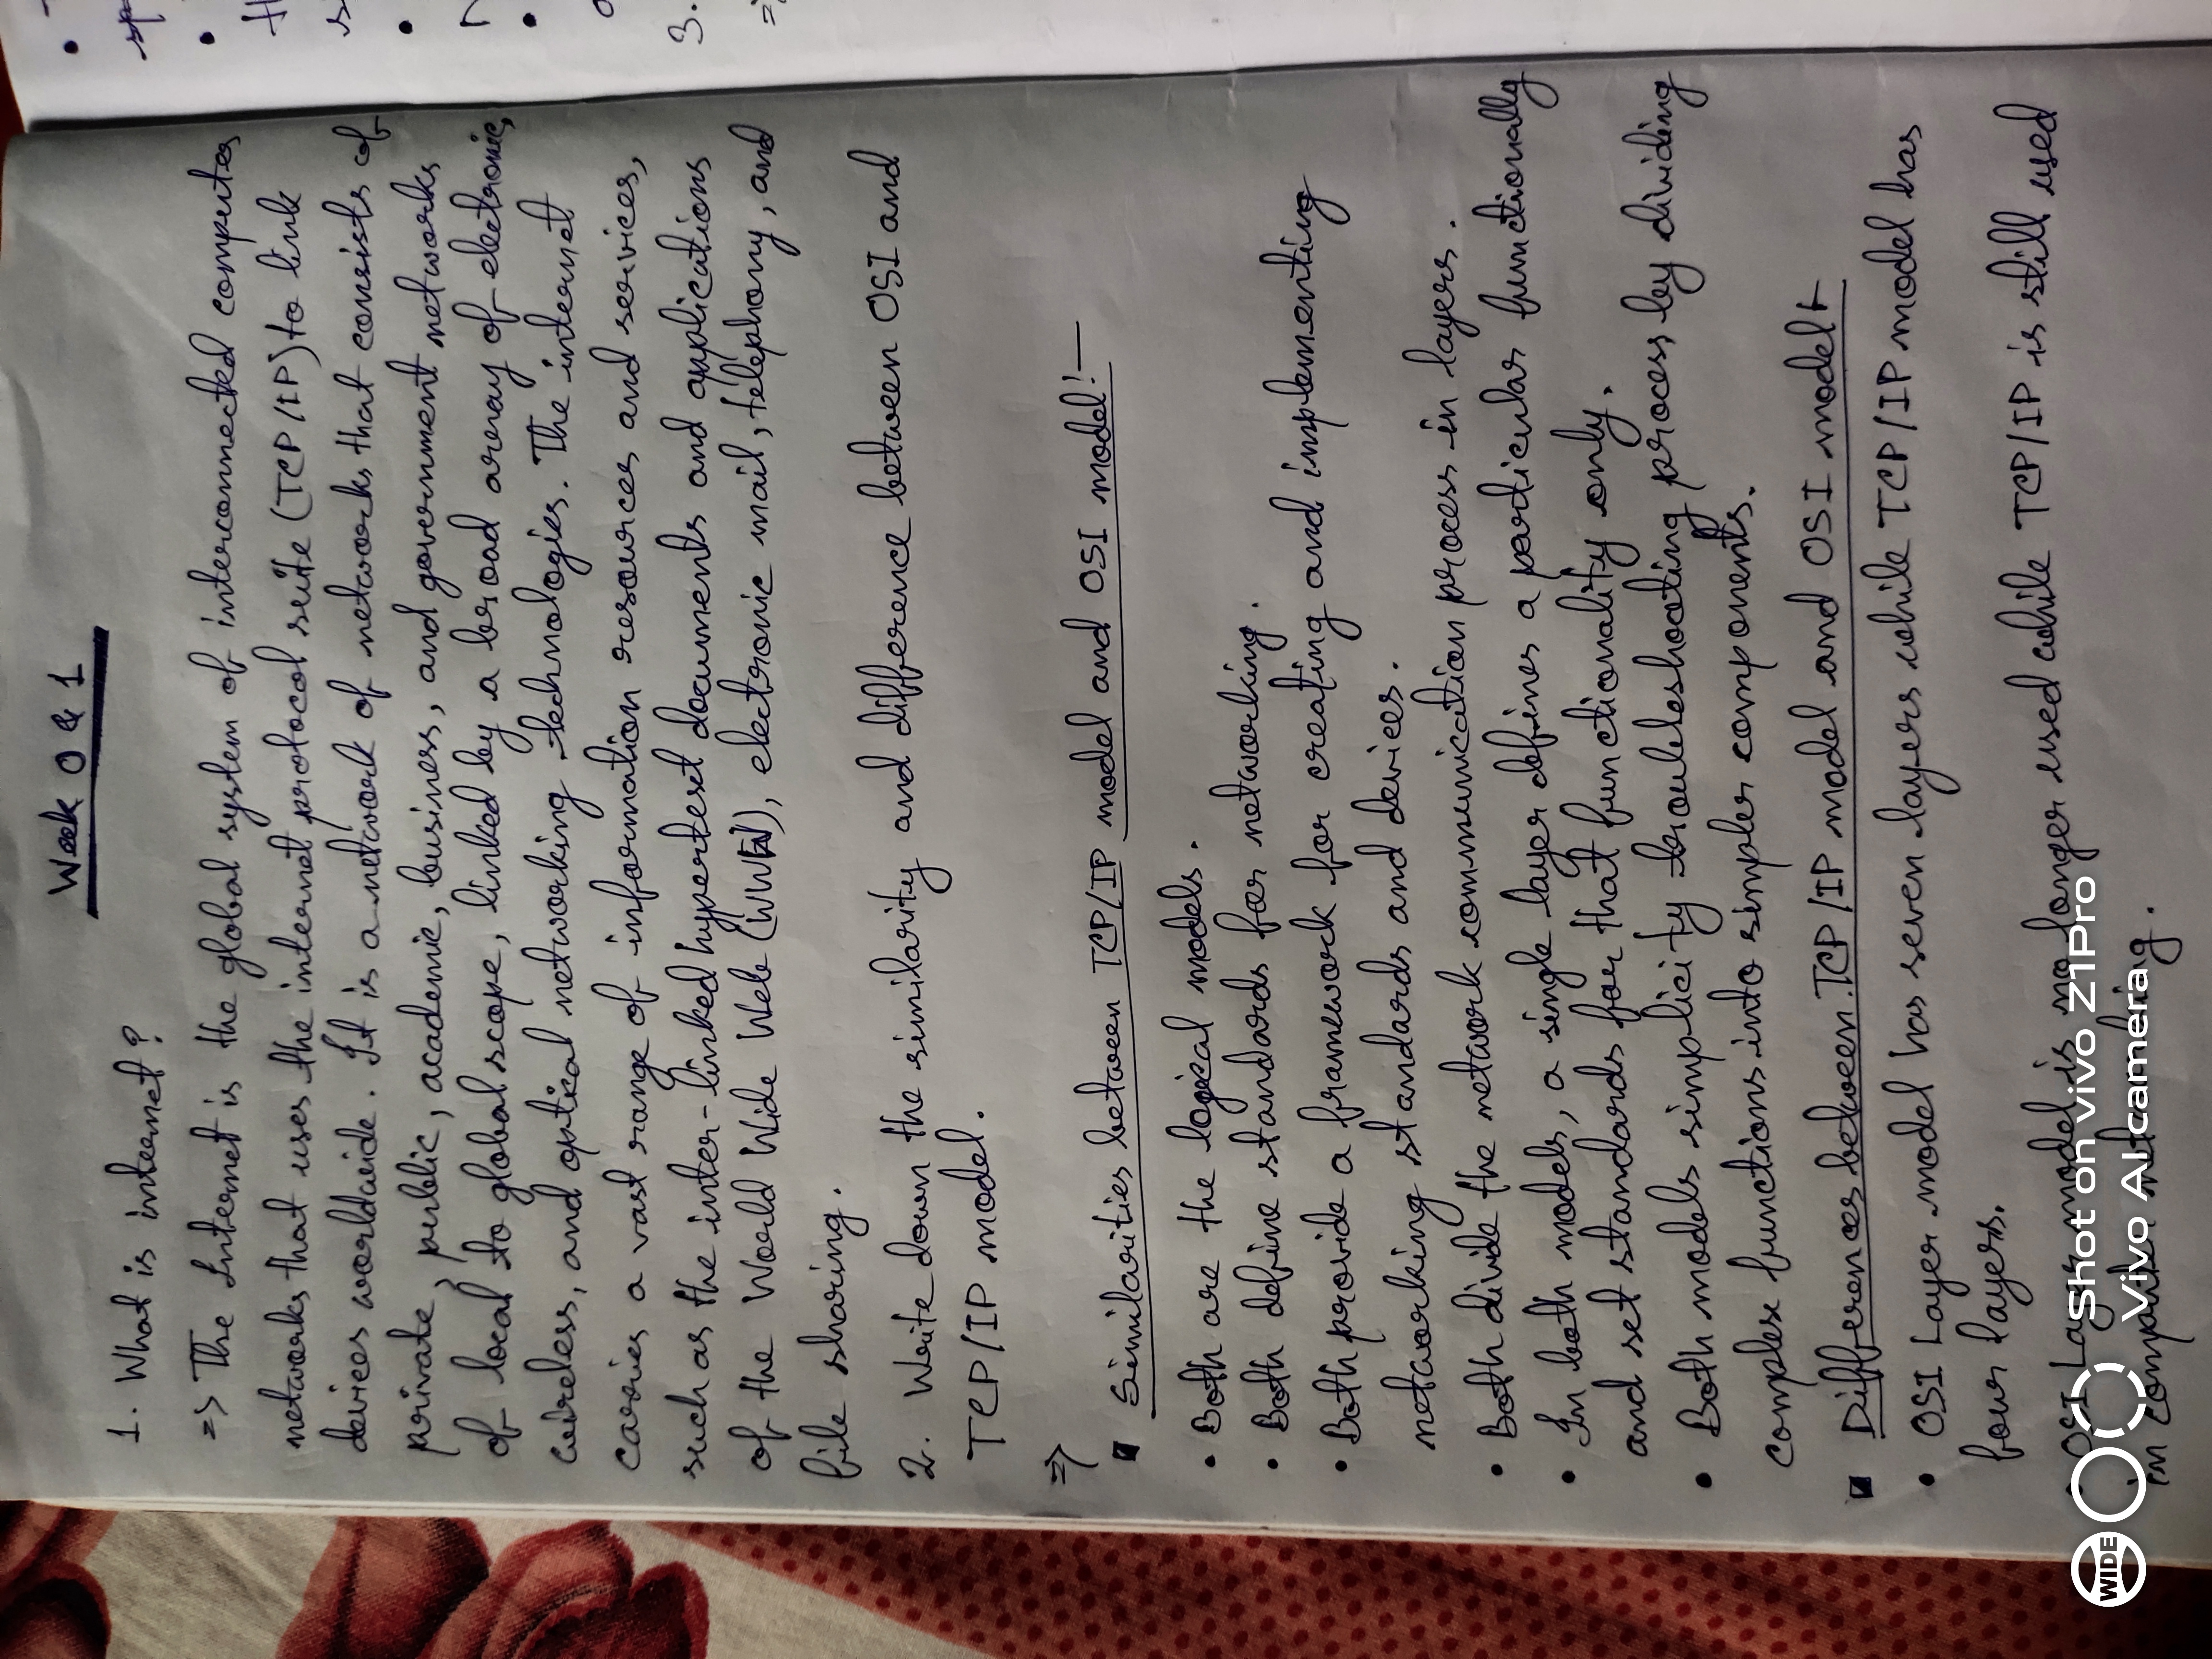 Week 0 & 1
1. What is internet?
=> The Internet is the global system of interconnected computer
networks that uses the internet protocol suite (TCP/IP) to link
devices worldwide. It is a network of networks that consists of
private, public, academic, business, and government networks
of local to global scope, linked by a broad array of electronic,
wireless, and optical networking technologies. The internet
carries a vast range of information resources and services,
such as the inter-linked hypertext documents and applications
of the World Wide Web (WWW), electronic mail, telephony, and
file sharing.
2. Write down the similarity and difference between OSI and
TCP/IP model.
=>
Similarities between TCP/IP model and OSI model:-
• Both are the logical models.
• Both define standards for networking.
• Both provide a framework for creating and implementing
networking standards and devices.
• Both divide the network communication process in layers.
• In both models, a single layer defines a particular functionally
and set standards for that functionality only.
• Both models simplicity troubleshooting process by dividing
complex functions into simpler components.
Differences between TCP/IP model and OSI model:-
• OSI Layer model has seven layers while TCP/IP model has
four layers.
• OSI Layer model is no longer used while TCP/IP is still used
in computer networking.
3.
WIDE
Shot on vivo Z1Pro
Vivo AI camera